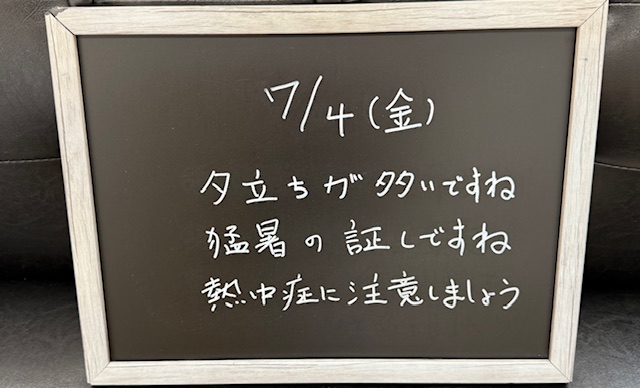 7/4(金)
夕立ちが多いですね
猛暑の証しですね
熱中症に注意しましょう